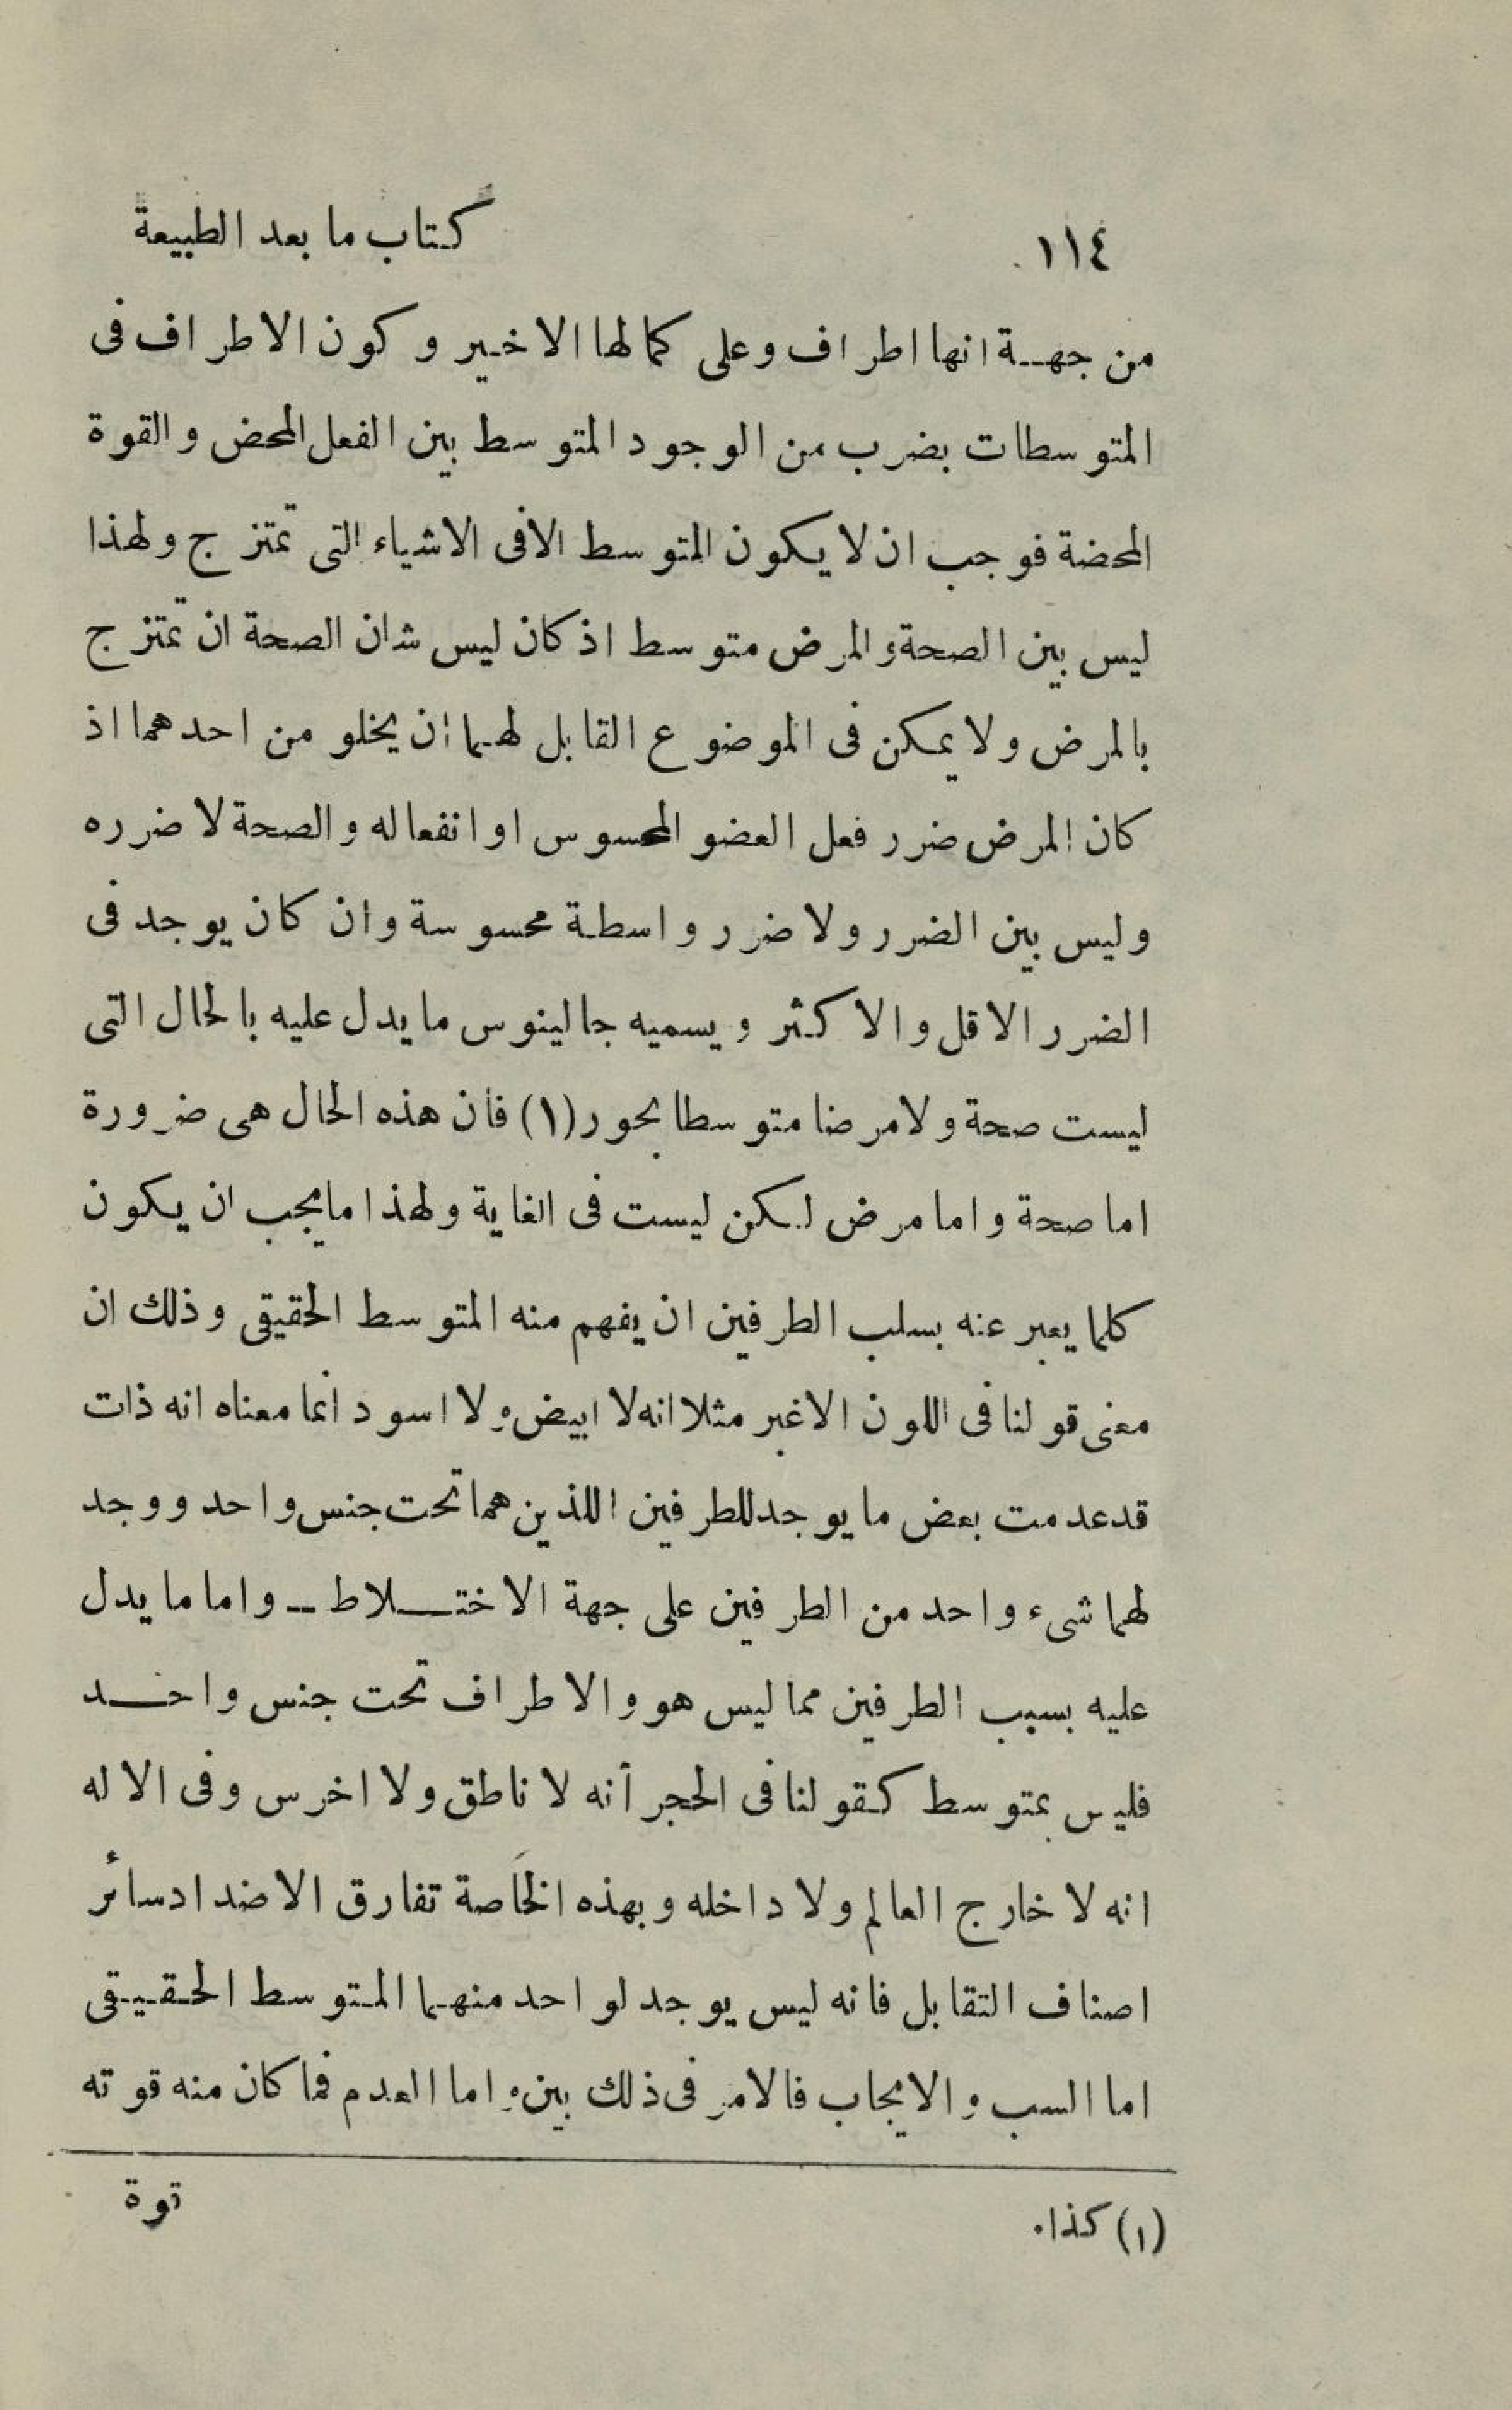 ١١٤ كتاب ما بعد الطبيعة
من جهة انها اطراف وعلى كمالها الاخير وكون الاطراف فى
المتوسطات بضرب من الوجود المتوسط بين الفعل المحض والقوة
المحضة فوجب ان لا يكون المتوسط الا فى الاشياء التى تمتزج ولهذا
ليس بين الصحة والمرض متوسط اذ كان ليس شان الصحة ان تمتزج
بالمرض ولا يمكن فى الموضوع القابل لهما ان يخلو من احدهما اذ
كان المرض ضرر فعل العضو المحسوس او انفعاله والصحة لا ضرره
وليس بين الضرر ولا ضرر واسطة محسوسة وان كان يوجد فى
الضرر الاقل والاكثر ويسميه جالينوس ما يدل عليه بالحال التى
ليست صحة ولا مرضا متوسطا بحور (١) فان هذه الحال هى ضرورة
اما صحة واما مرض لكن ليست فى الغاية ولهذا ما يجب ان يكون
كلما يعبر عنه بسلب الطرفين ان يفهم منه المتوسط الحقيقى وذلك ان
معنى قولنا فى اللون الاغبر مثلا انه لا ابيض ولا اسود انما معناه انه ذات
قد عدمت بعض ما يوجد للطرفين اللذين هما تحت جنس واحد ووجد
لهما شىء واحد من الطرفين على جهة الاختلاط ــ واما ما يدل
عليه بسبب الطرفين مما ليس هو والاطراف تحت جنس واحد
فليس بمتوسط كقولنا فى الحجر أنه لا ناطق ولا اخرس وفى الاله
انه لا خارج العالم ولا داخله وبهذه الخاصة تفارق الاضداد سائر
اصناف التقابل فانه ليس يوجد لواحد منهما المتوسط الحقيقى
اما السب والايجاب فالامر فى ذلك بين واما العدم فما كان منه قوته
قوة
(١) كذا.